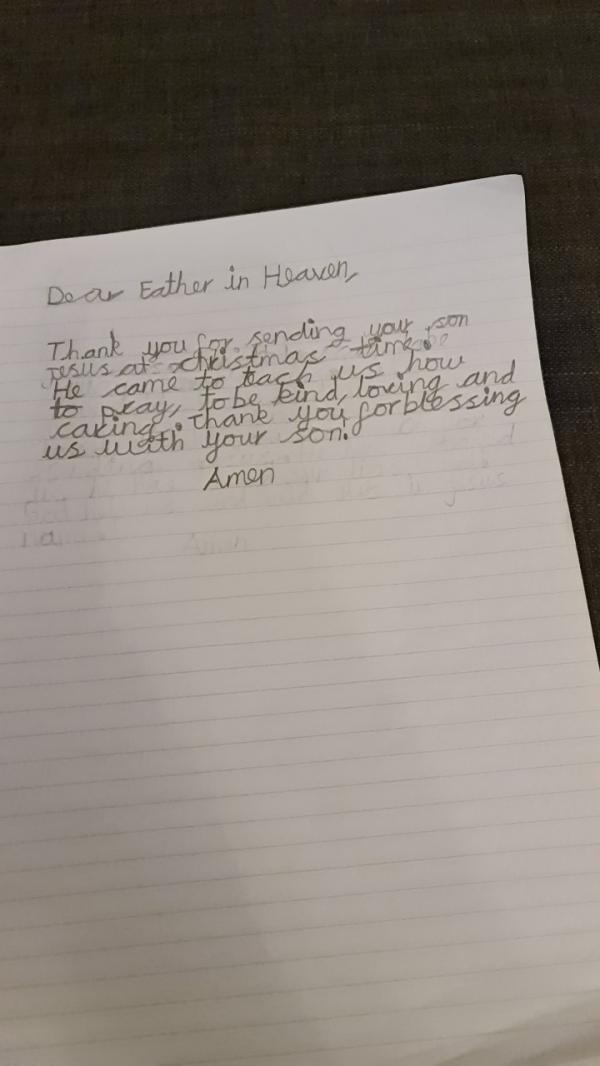 Dear Eather in Heaven,
Thank you for sending your son
Jesus at christmas time.
He came to teach us how
to pray, to be kind, loving and
caring. Thank you for blessing
us with your son.
Amen
Amen